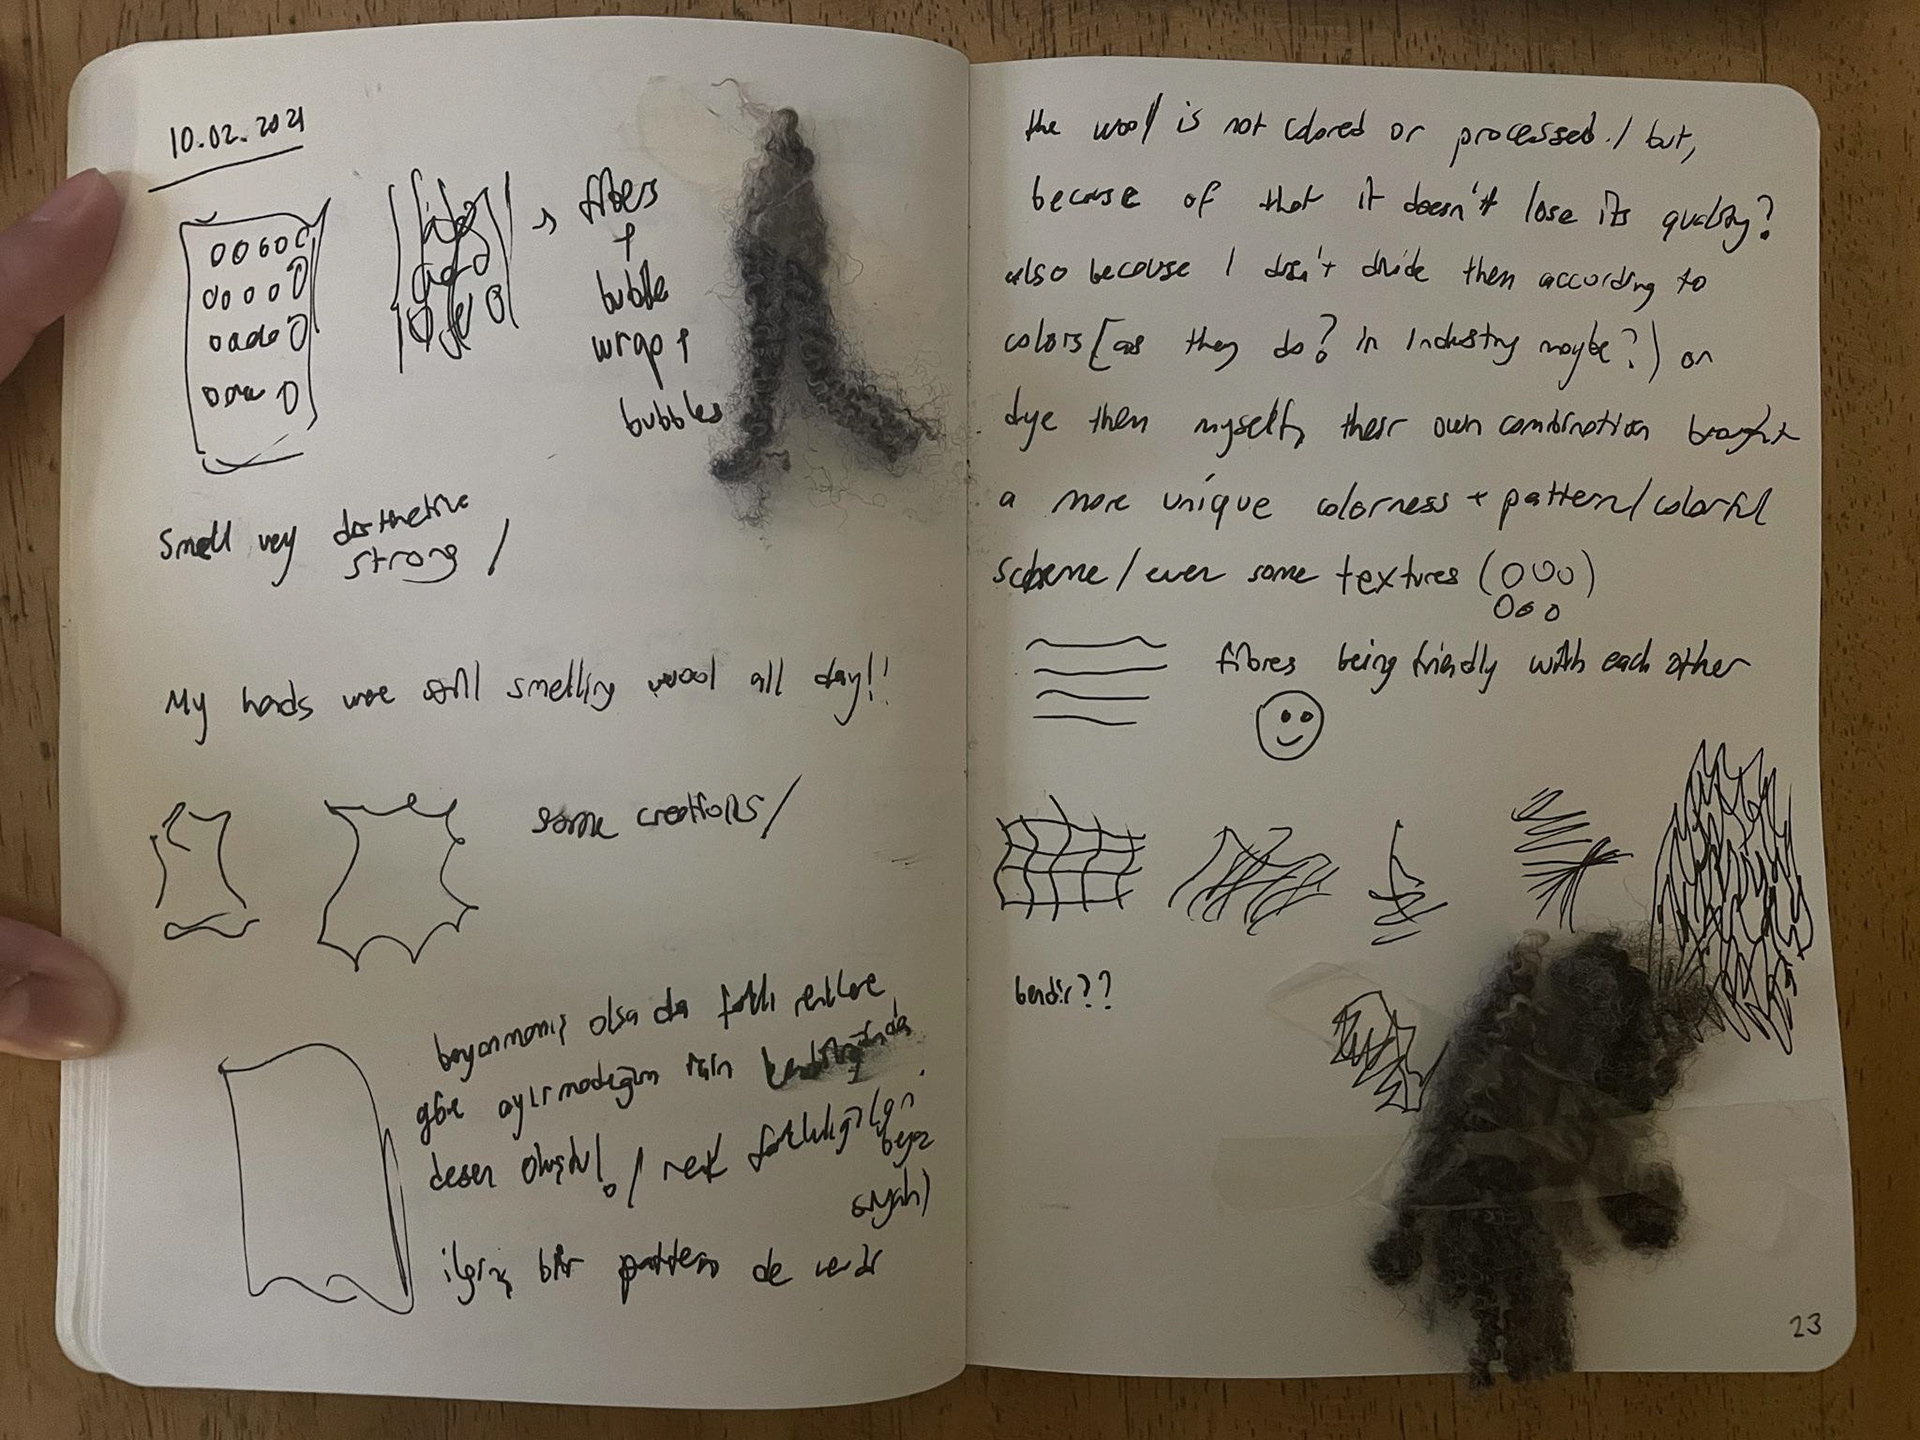 10.02.2021
fibers
+
bubble
wrap +
bubbles
Smell very distinctive
strong /
My hands were still smelling wool all day!!
some creations/
boyanmamış olsa da farklı renklere
göre ayırmadığım için
desen oluştu! / renk farklılığı (gri
beyaz
siyah)
ilginç bir pattern de verdi
the wool is not colored or processed / but,
because of that it doesn't lose its quality?
also because I don't divide them according to
colors (as they do? in Industry maybe?) or
dye them myself, their own combination brought
a more unique colorness + pattern/colorful
scheme / even some textures
fibres being friendly with each other
bendir??
23